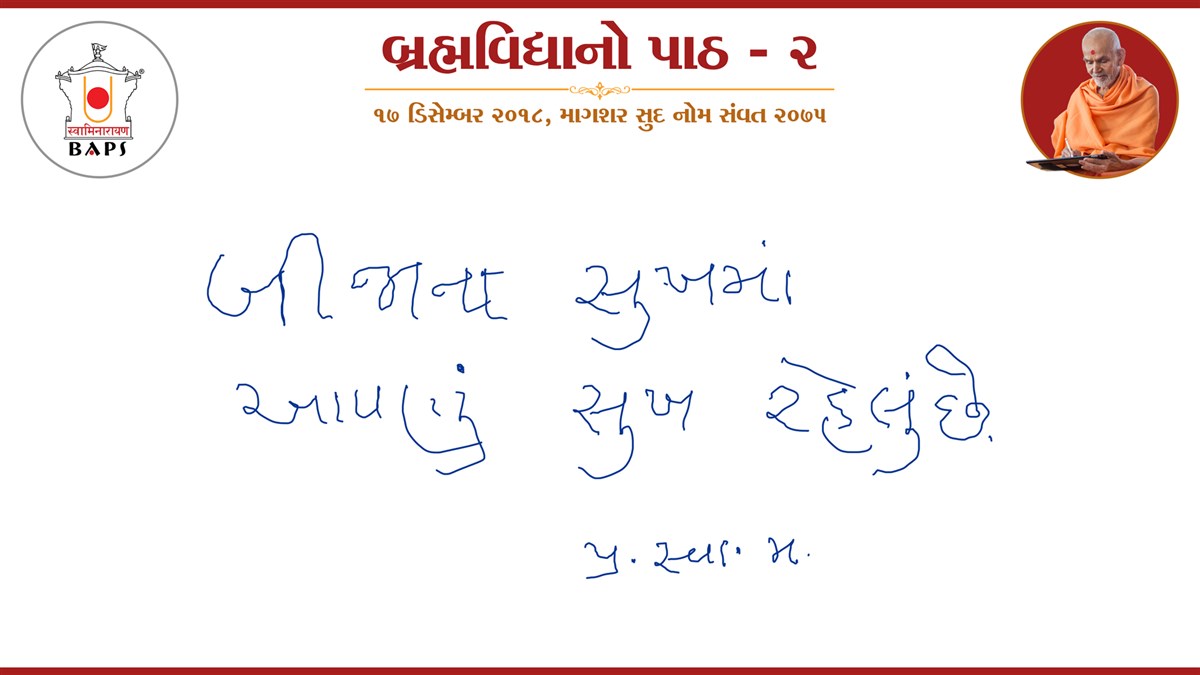 બ્રહ્મવિદ્યાનો પાઠ - ૨
૧૭ ડિસેમ્બર ૨૦૧૮, માગશર સુદ નોમ સંવત ૨૦૭૫
स्वामिनारायण
BAPS
બીજાના સુખમાં
આપણું સુખ રહેલું છે.
પ્ર. સ્વા. મ.